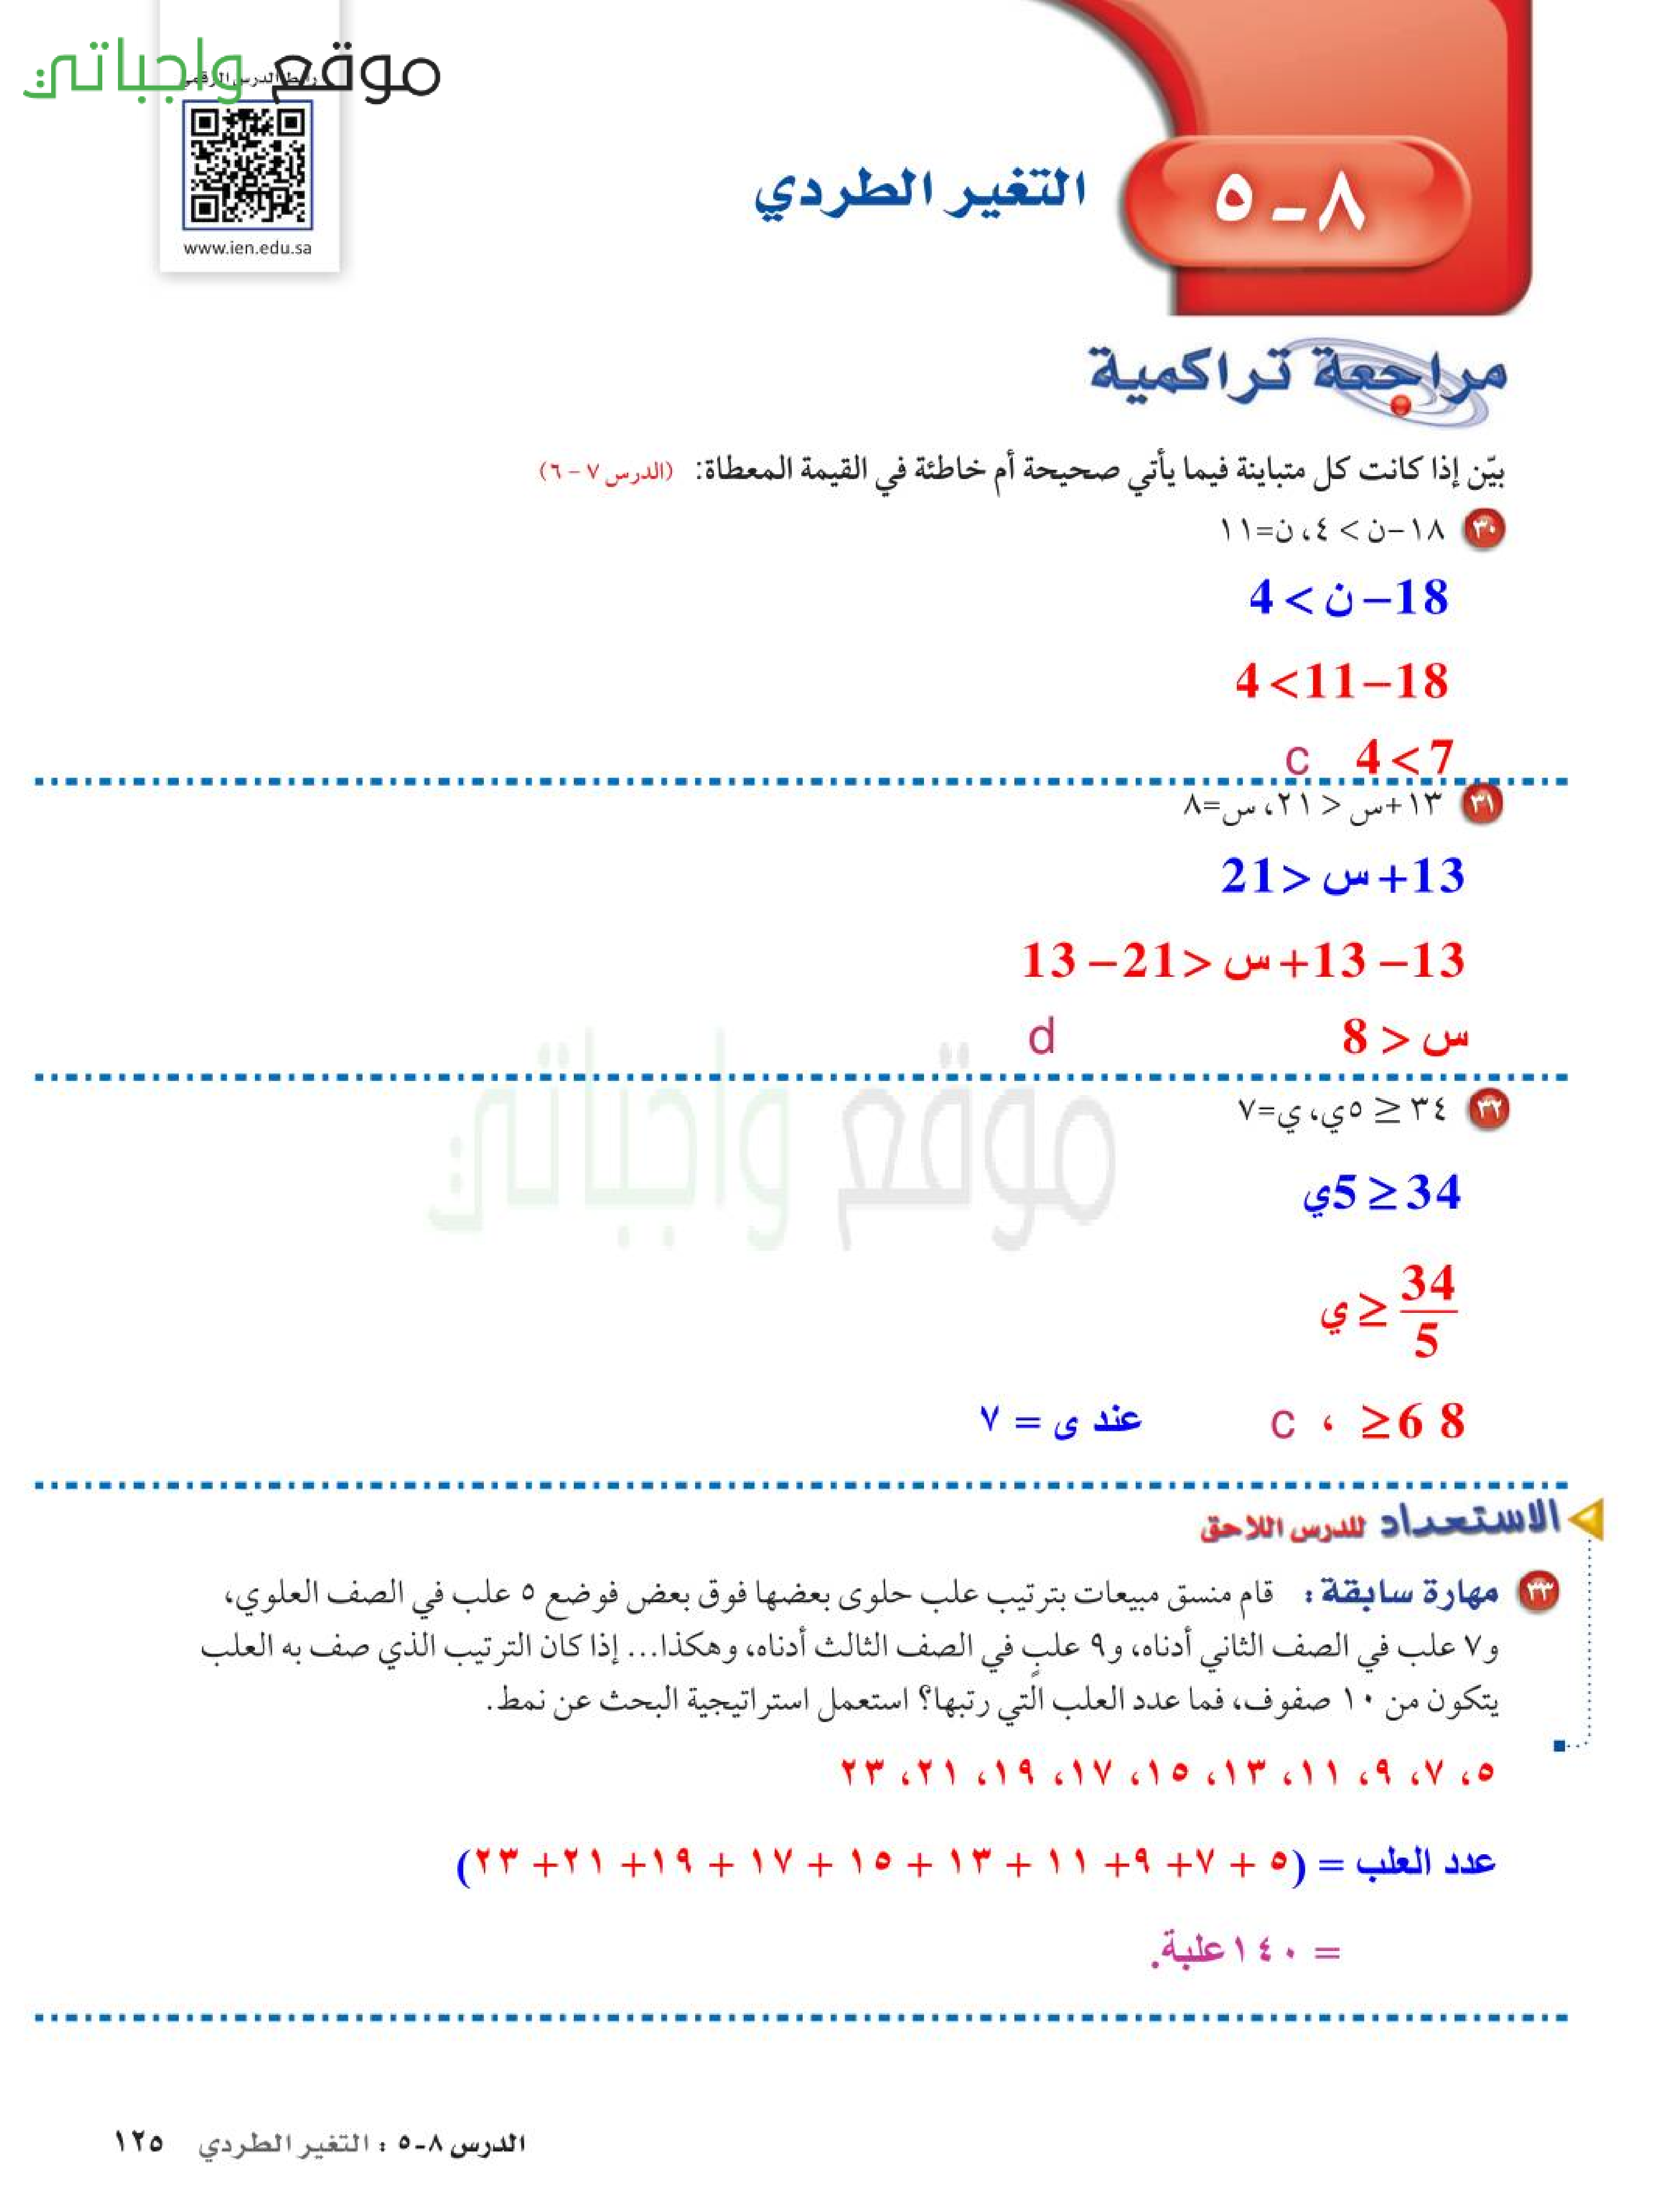 موقع واجباتي
رابط الدرس الرقمي
www.ien.edu.sa
٨-٥
التغير الطردي
مراجعة تراكمية
بيّن إذا كانت كل متباينة فيما يأتي صحيحة أم خاطئة في القيمة المعطاة: (الدرس ٧ - ٦)
٣٠ ١٨-ن > ٤، ن=١١
18- ن > 4
18-11> 4
7 > 4 c
٣١ ١٣+س < ٢١، س=٨
13+ س <21
13- 13+ س <21- 13
س < 8 d
٣٢ ٣٤ ≥ ٥ي، ي=٧
34 ≥ 5ي
34
≥ ي
5
6 8≥ ، c عند ى = ٧
موقع واجباتي
الاستعداد للدرس اللاحق
٣٣ مهارة سابقة : قام منسق مبيعات بترتيب علب حلوى بعضها فوق بعض فوضع ٥ علب في الصف العلوي،
و٧ علب في الصف الثاني أدناه، و٩ علبٍ في الصف الثالث أدناه، وهكذا... إذا كان الترتيب الذي صف به العلب
يتكون من ١٠ صفوف، فما عدد العلب التي رتبها؟ استعمل استراتيجية البحث عن نمط.
٥، ٧، ٩، ١١، ١٣، ١٥، ١٧، ١٩، ٢١، ٢٣
عدد العلب = (٥ + ٧+ ٩+ ١١ + ١٣ + ١٥ + ١٧ + ١٩+ ٢١+ ٢٣)
= ١٤٠ علبة.
الدرس ٨-٥ : التغير الطردي ١٢٥